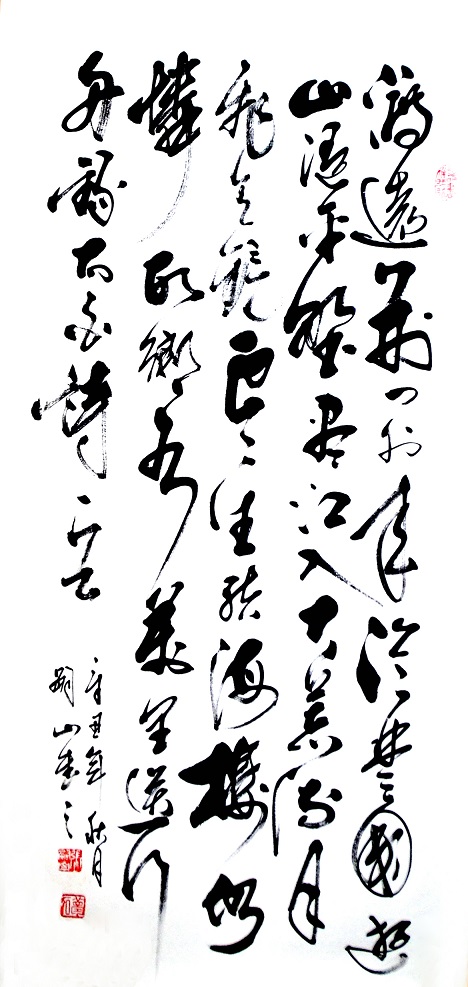 渡遠荊門外來從楚國遊
山隨平野盡江入大荒流月
飛天鏡雲生結海樓仍
憐故鄉水萬里送行
舟錄李白詩一首
辛丑年秋月
山書之